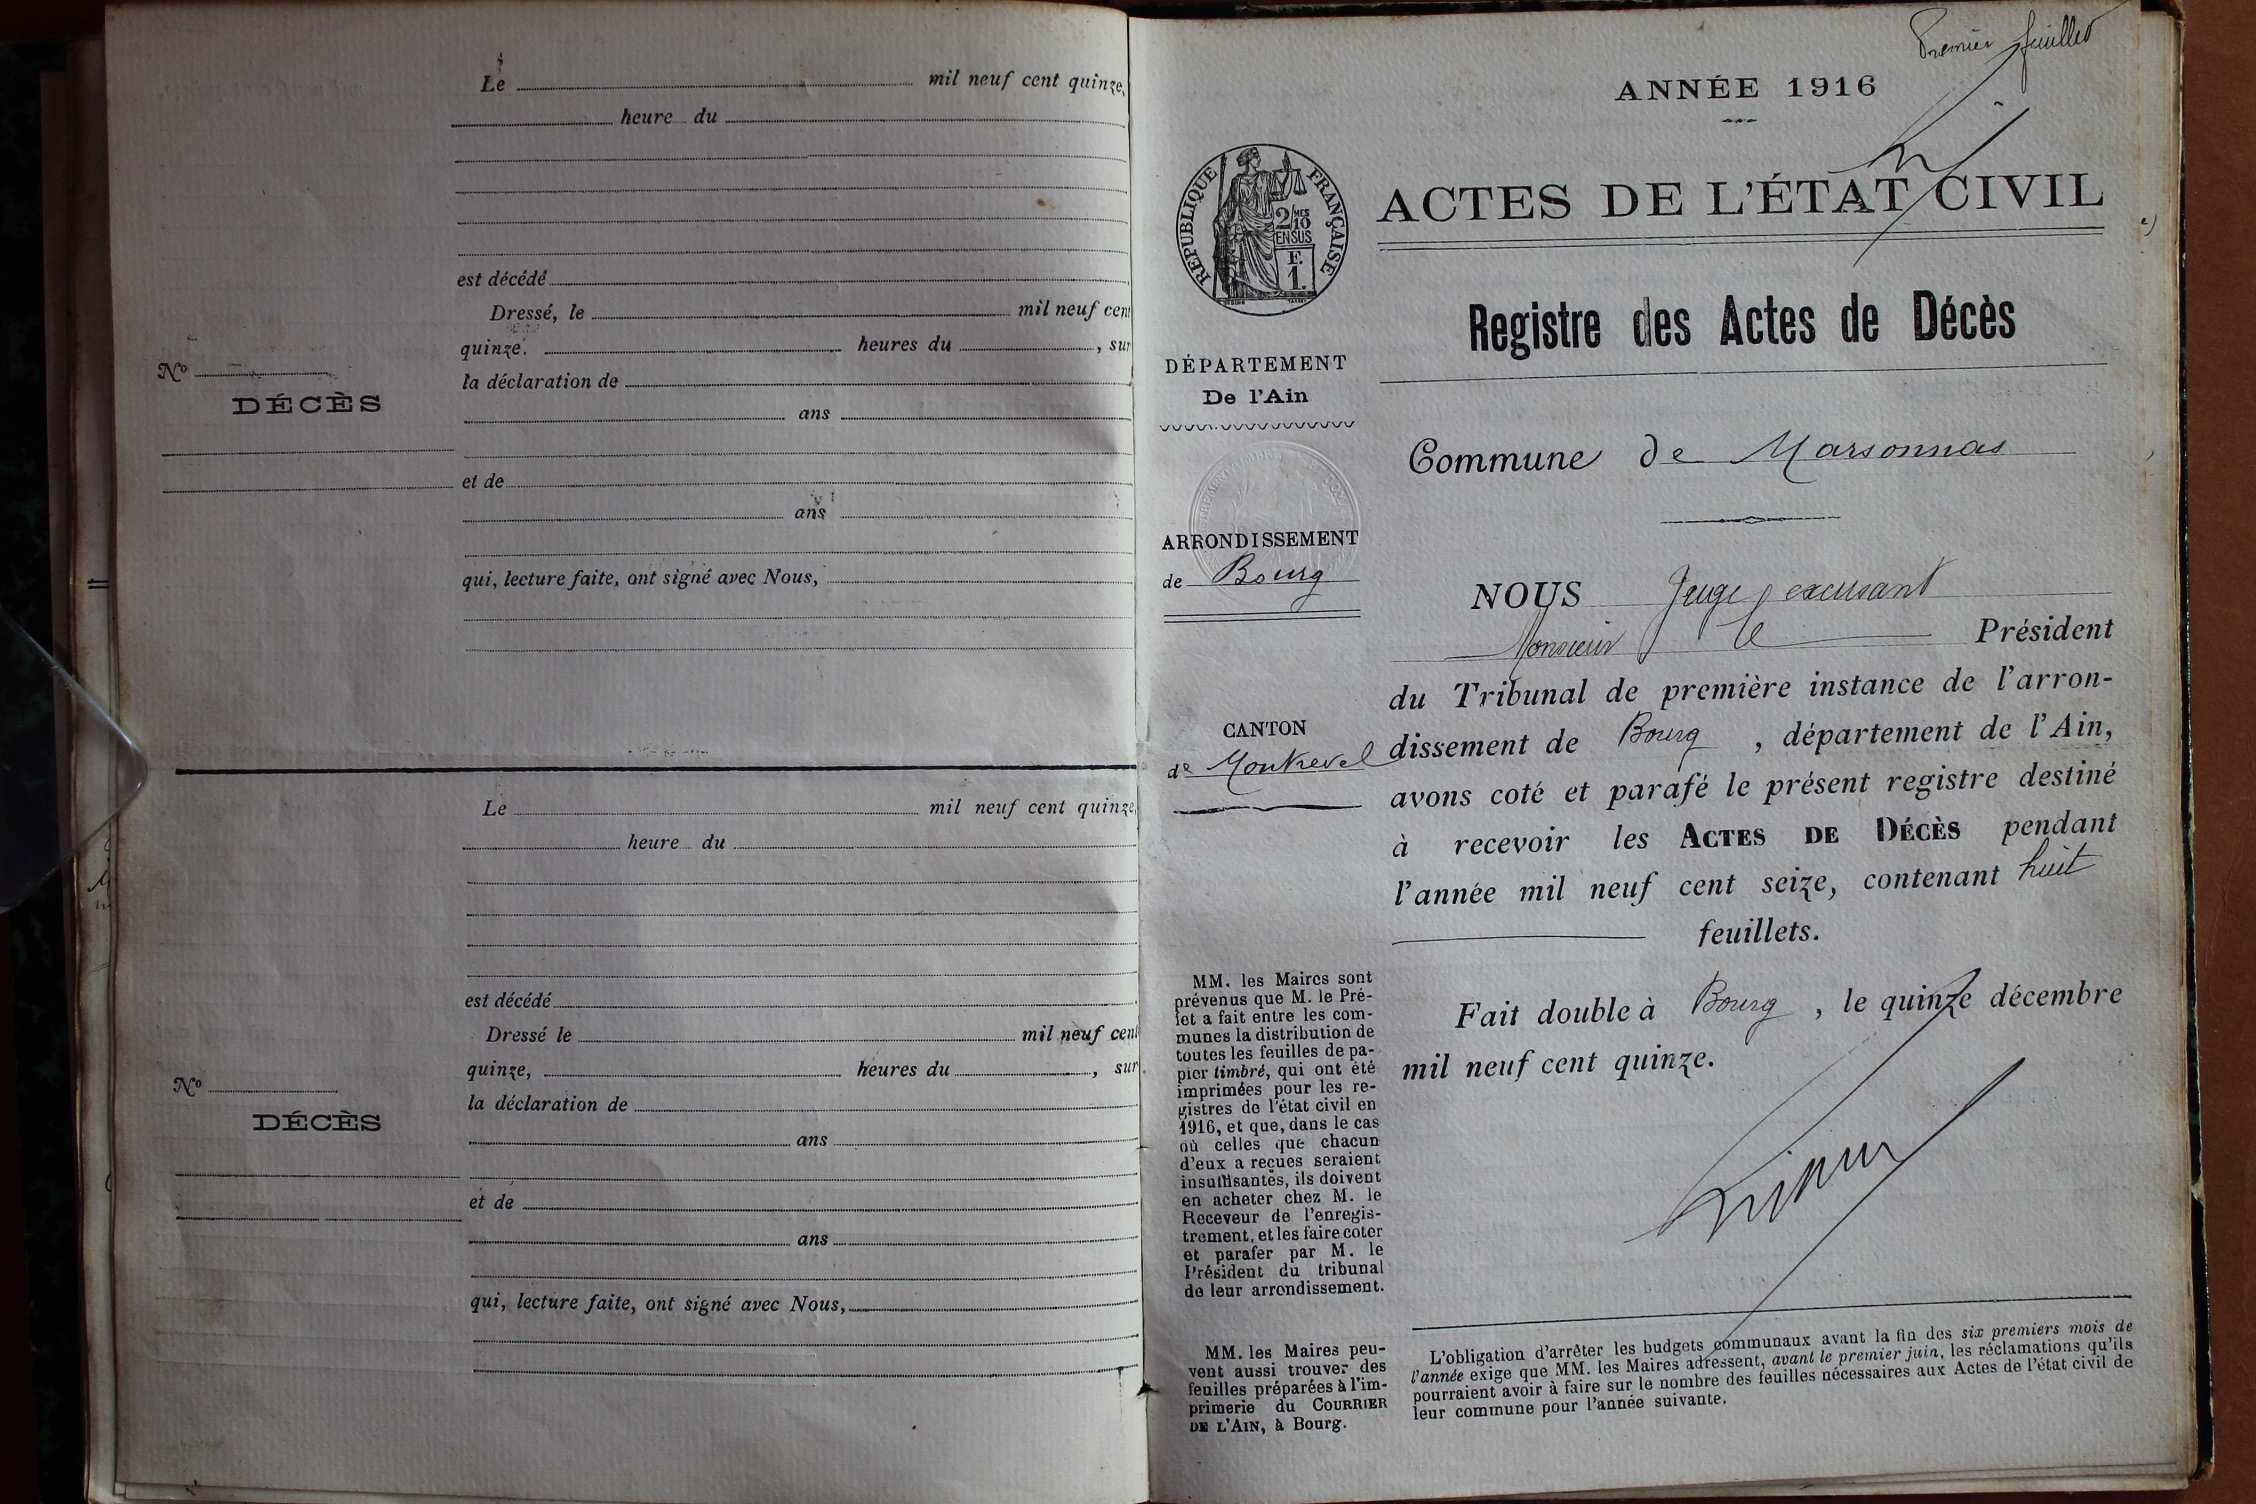 Le mil neuf cent quinze,
heure du
est décédé
Dressé, le mil neuf cent
quinze. heures du , sur
la déclaration de
ans
et de
ans
qui, lecture faite, ont signé avec Nous,
No
DÉCÈS
Le mil neuf cent quinze,
heure du
est décédé
Dressé le mil neuf cent
quinze, heures du , sur
la déclaration de
ans
et de
ans
qui, lecture faite, ont signé avec Nous,
No
DÉCÈS
Premier feuillet
ANNÉE 1916
ACTES DE L'ÉTAT CIVIL
RÉPUBLIQUE FRANÇAISE
2/10 MES
EN SUS
F.
1.
Registre des Actes de Décès
DÉPARTEMENT
De l'Ain
Commune de Marsonnas
ARRONDISSEMENT
de Bourg
CANTON
de Montrevel
NOUS Juge excusant
Monsieur le Président
du Tribunal de première instance de l'arron-
dissement de Bourg , département de l'Ain,
avons coté et parafé le présent registre destiné
à recevoir les ACTES DE DÉCÈS pendant
l'année mil neuf cent seize, contenant huit
feuillets.
Fait double à Bourg , le quinze décembre
mil neuf cent quinze.
MM. les Maires sont
prévenus que M. le Pré-
fet a fait entre les com-
munes la distribution de
toutes les feuilles de pa-
pier timbré, qui ont été
imprimées pour les re-
gistres de l'état civil en
1916, et que, dans le cas
où celles que chacun
d'eux a reçues seraient
insuffisantes, ils doivent
en acheter chez M. le
Receveur de l'enregis-
trement, et les faire coter
et parafer par M. le
Président du tribunal
de leur arrondissement.
MM. les Maires peu-
vent aussi trouver des
feuilles préparées à l'im-
primerie du COURRIER
DE L'AIN, à Bourg.
L'obligation d'arrêter les budgets communaux avant la fin des six premiers mois de
l'année exige que MM. les Maires adressent, avant le premier juin, les réclamations qu'ils
pourraient avoir à faire sur le nombre des feuilles nécessaires aux Actes de l'état civil de
leur commune pour l'année suivante.